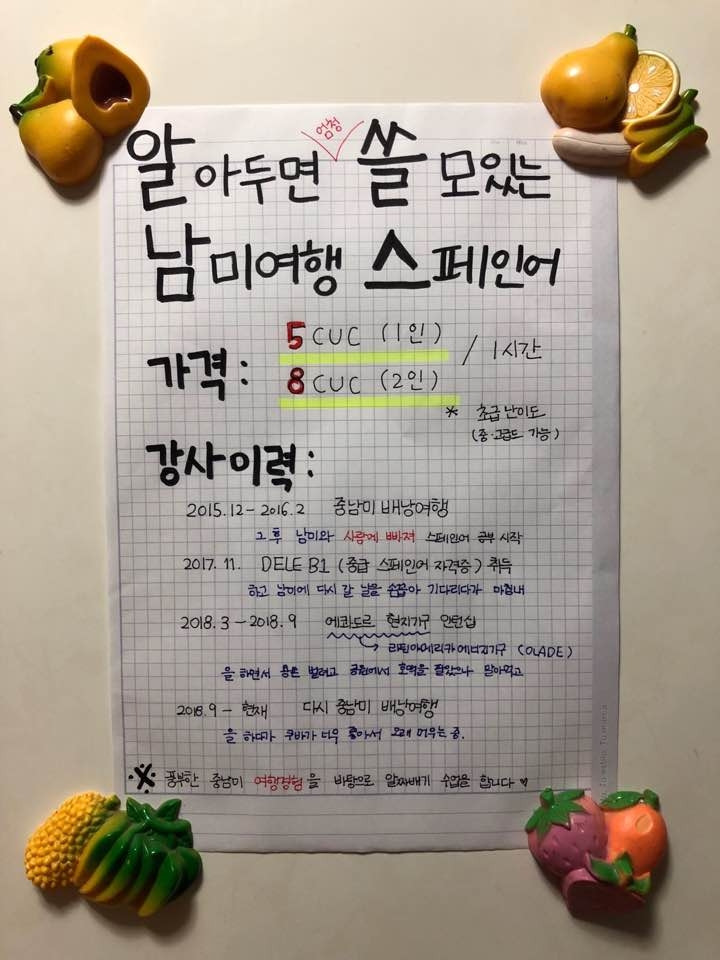 알아두면 엄청 쓸모있는
남미여행 스페인어
가격: 5 CUC (1인) / 1시간
8 CUC (2인)
* 초급 난이도
(중·고급도 가능)
강사이력:
2015.12 - 2016.2 중남미 배낭여행
그 후 남미와 사랑에 빠져 스페인어 공부 시작
2017. 11. DELE B1 (중급 스페인어 자격증) 취득
하고 남미에 다시 갈 날을 손꼽아 기다리다가 마침내
2018.3 - 2018.9 에콰도르 현지기구 인턴십
→ 라틴아메리카에너지기구 (OLADE)
을 하면서 용돈 벌려고 공원에서 호떡을 팔았으나 말아먹고
2018.9 - 현재 다시 중남미 배낭여행
을 하다가 쿠바가 너무 좋아서 오래 머무는 중.
※ 풍부한 중남미 여행경험을 바탕으로 알짜배기 수업을 합니다 ♥